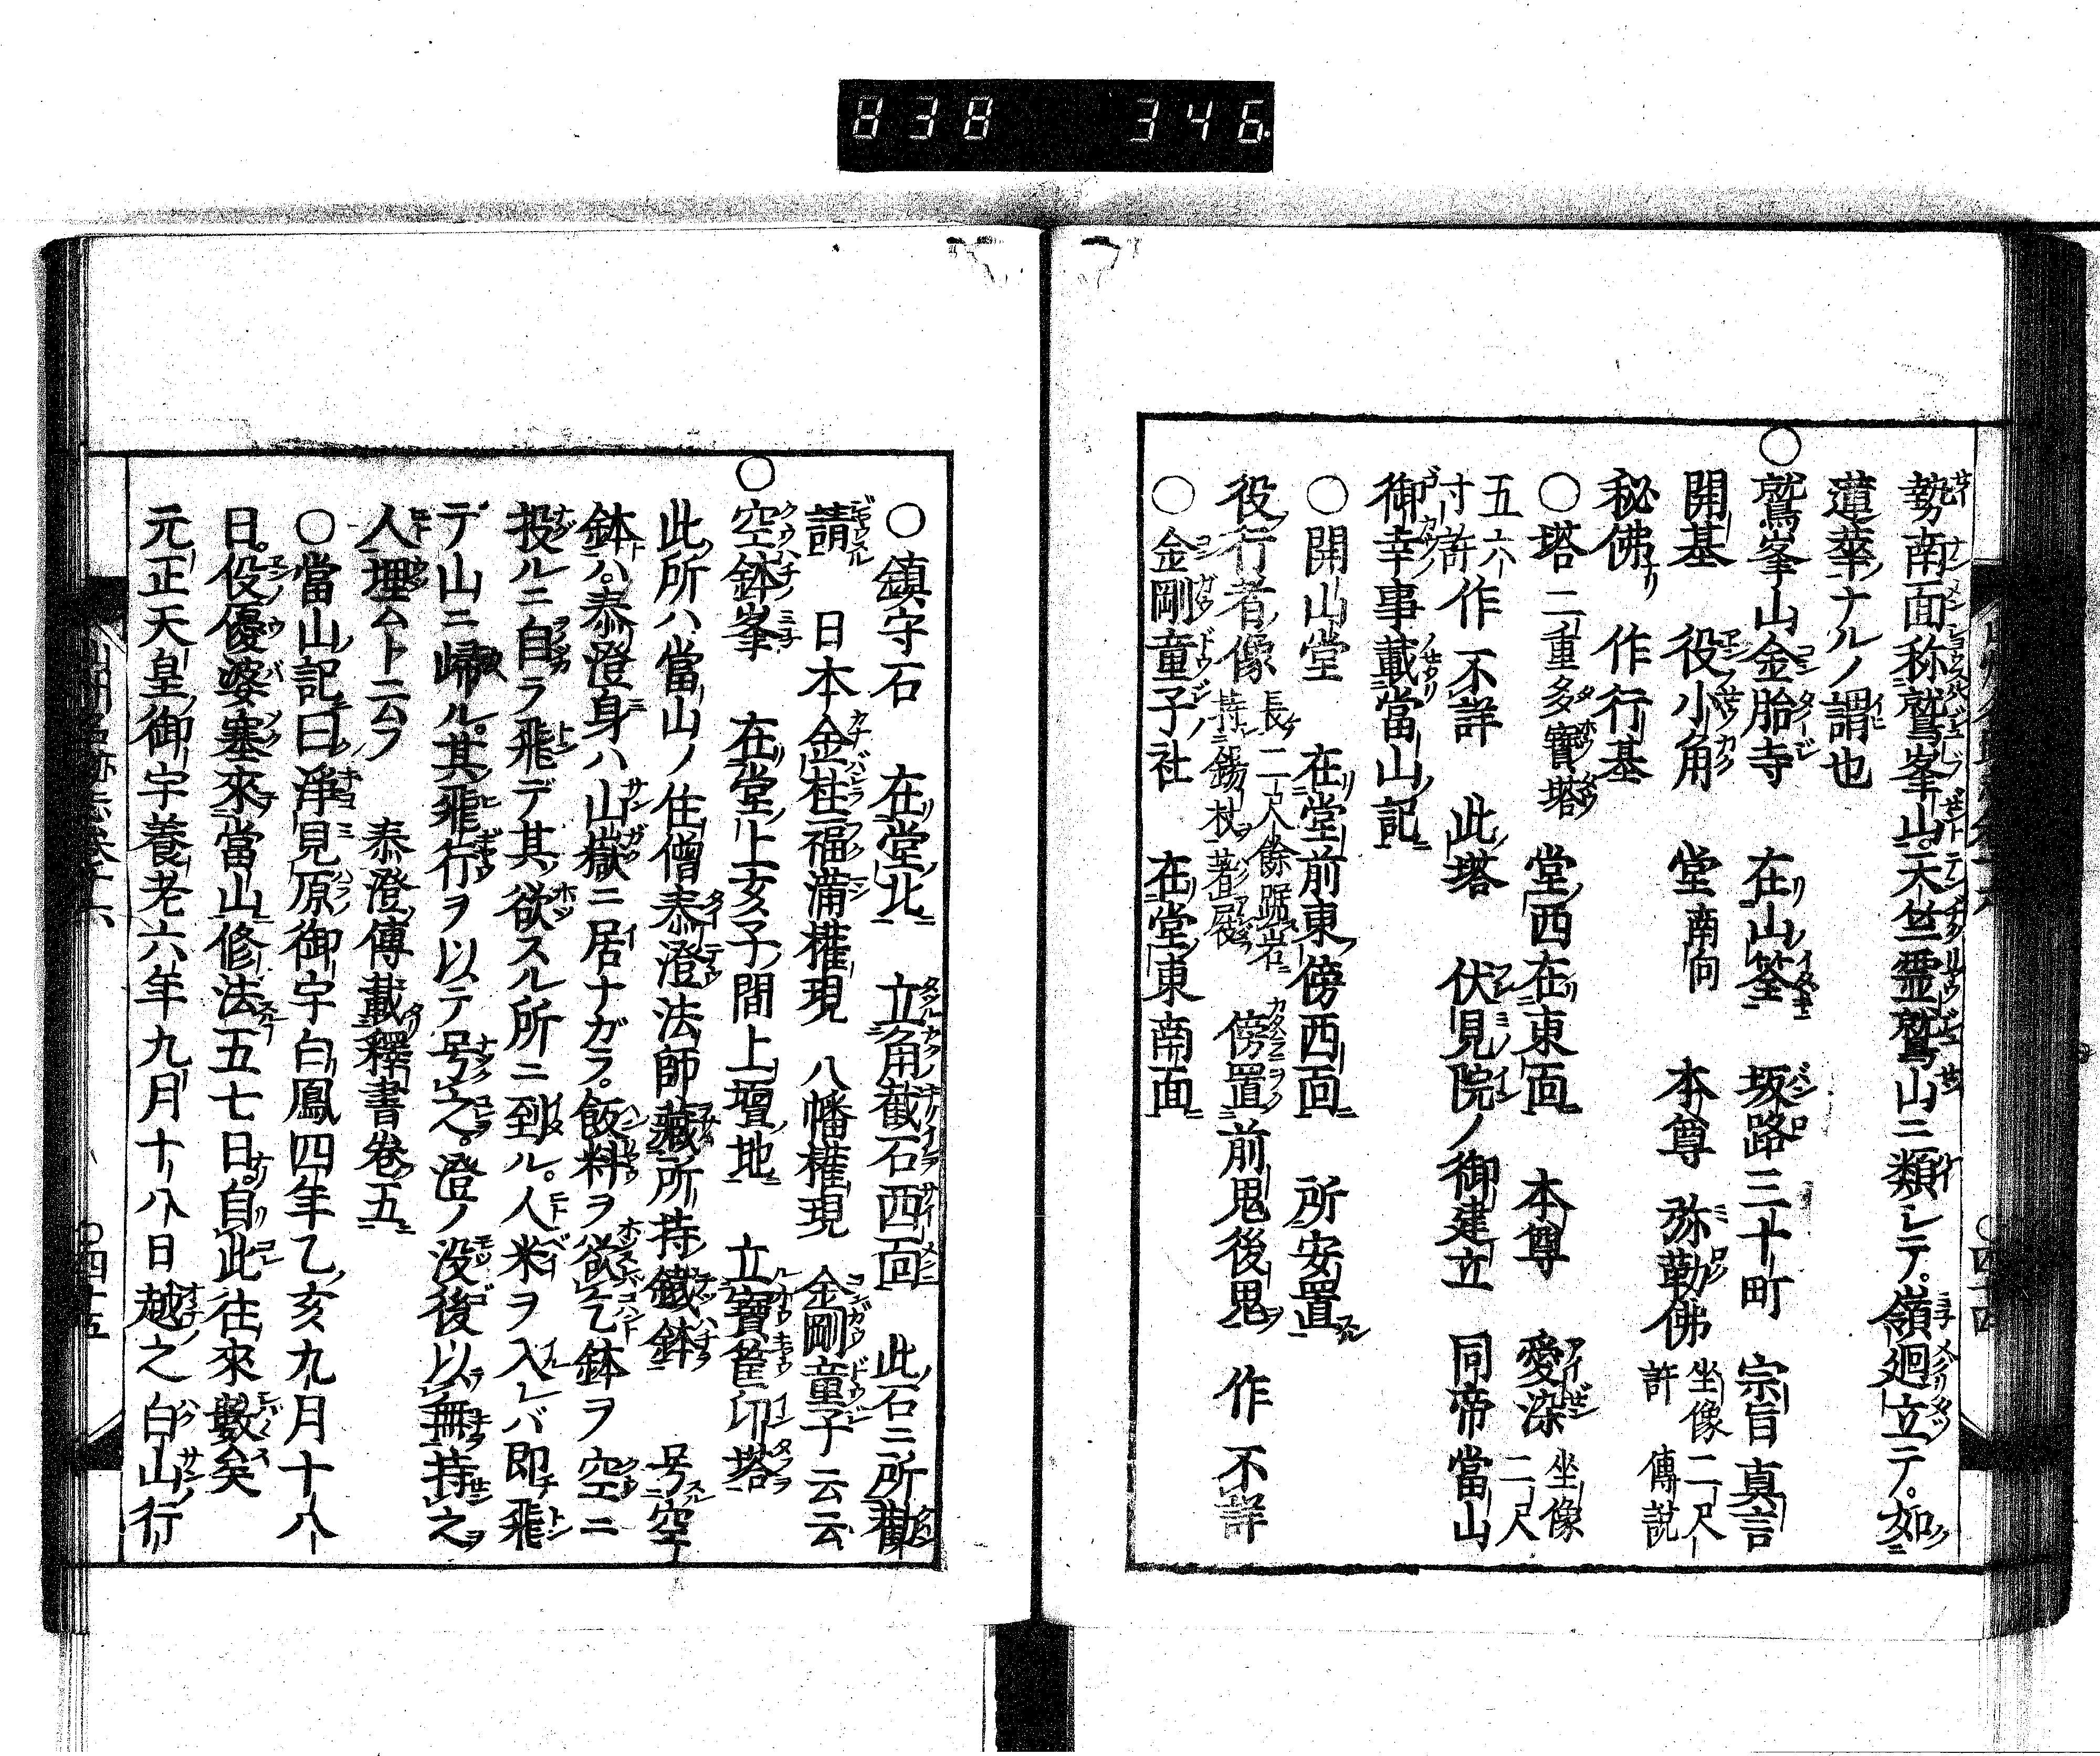 838 346
勢南面称鷲峯山天竺霊鷲山ニ類シテ嶺廻立テ如
蓮華ナルノ謂也
○鷲峯山金胎寺 在山筌 坂路三十町 宗旨真言
開基 役小角 堂南向 本尊 弥勒佛坐像二尺許 傳説
秘佛 作行基
○塔二重多寶塔 堂西在東面 本尊 愛染坐像二尺
五六寸許 作不詳 此塔 伏見院ノ御建立 同帝當山
御幸事載當山記
○開山堂 在堂前東傍西面 所安置
役行者像長二尺余踞岩持錫杖著屐 傍置前鬼後鬼 作不詳
○金剛童子社 在堂東南面
○鎮守石 在堂北 立角截石四面 此石ニ所勸
請 日本金柱福満權現 八幡權現 金剛童子云云
○空鉢峯 在堂上亥子間上壇地 立寶篋印塔
此所ハ當山ノ住僧泰澄法師藏所持鐵鉢 号空
鉢ハ泰澄身ハ山嶽ニ居ナガラ飯料ヲ欲乞鉢ヲ空ニ
投ルニ自ラ飛デ其欲スル所ニ到ル人米ヲ入レバ即飛
デ山ニ帰ル其飛行ヲ以テ号之澄ノ没後以無持之
人埋ムト云フ 泰澄傳載釋書巻五
○當山記曰浄見原御宇白鳳四年乙亥九月十八
日役優婆塞來當山修法五七日自此往來數矣
元正天皇御宇養老六年九月十八日越之白山行